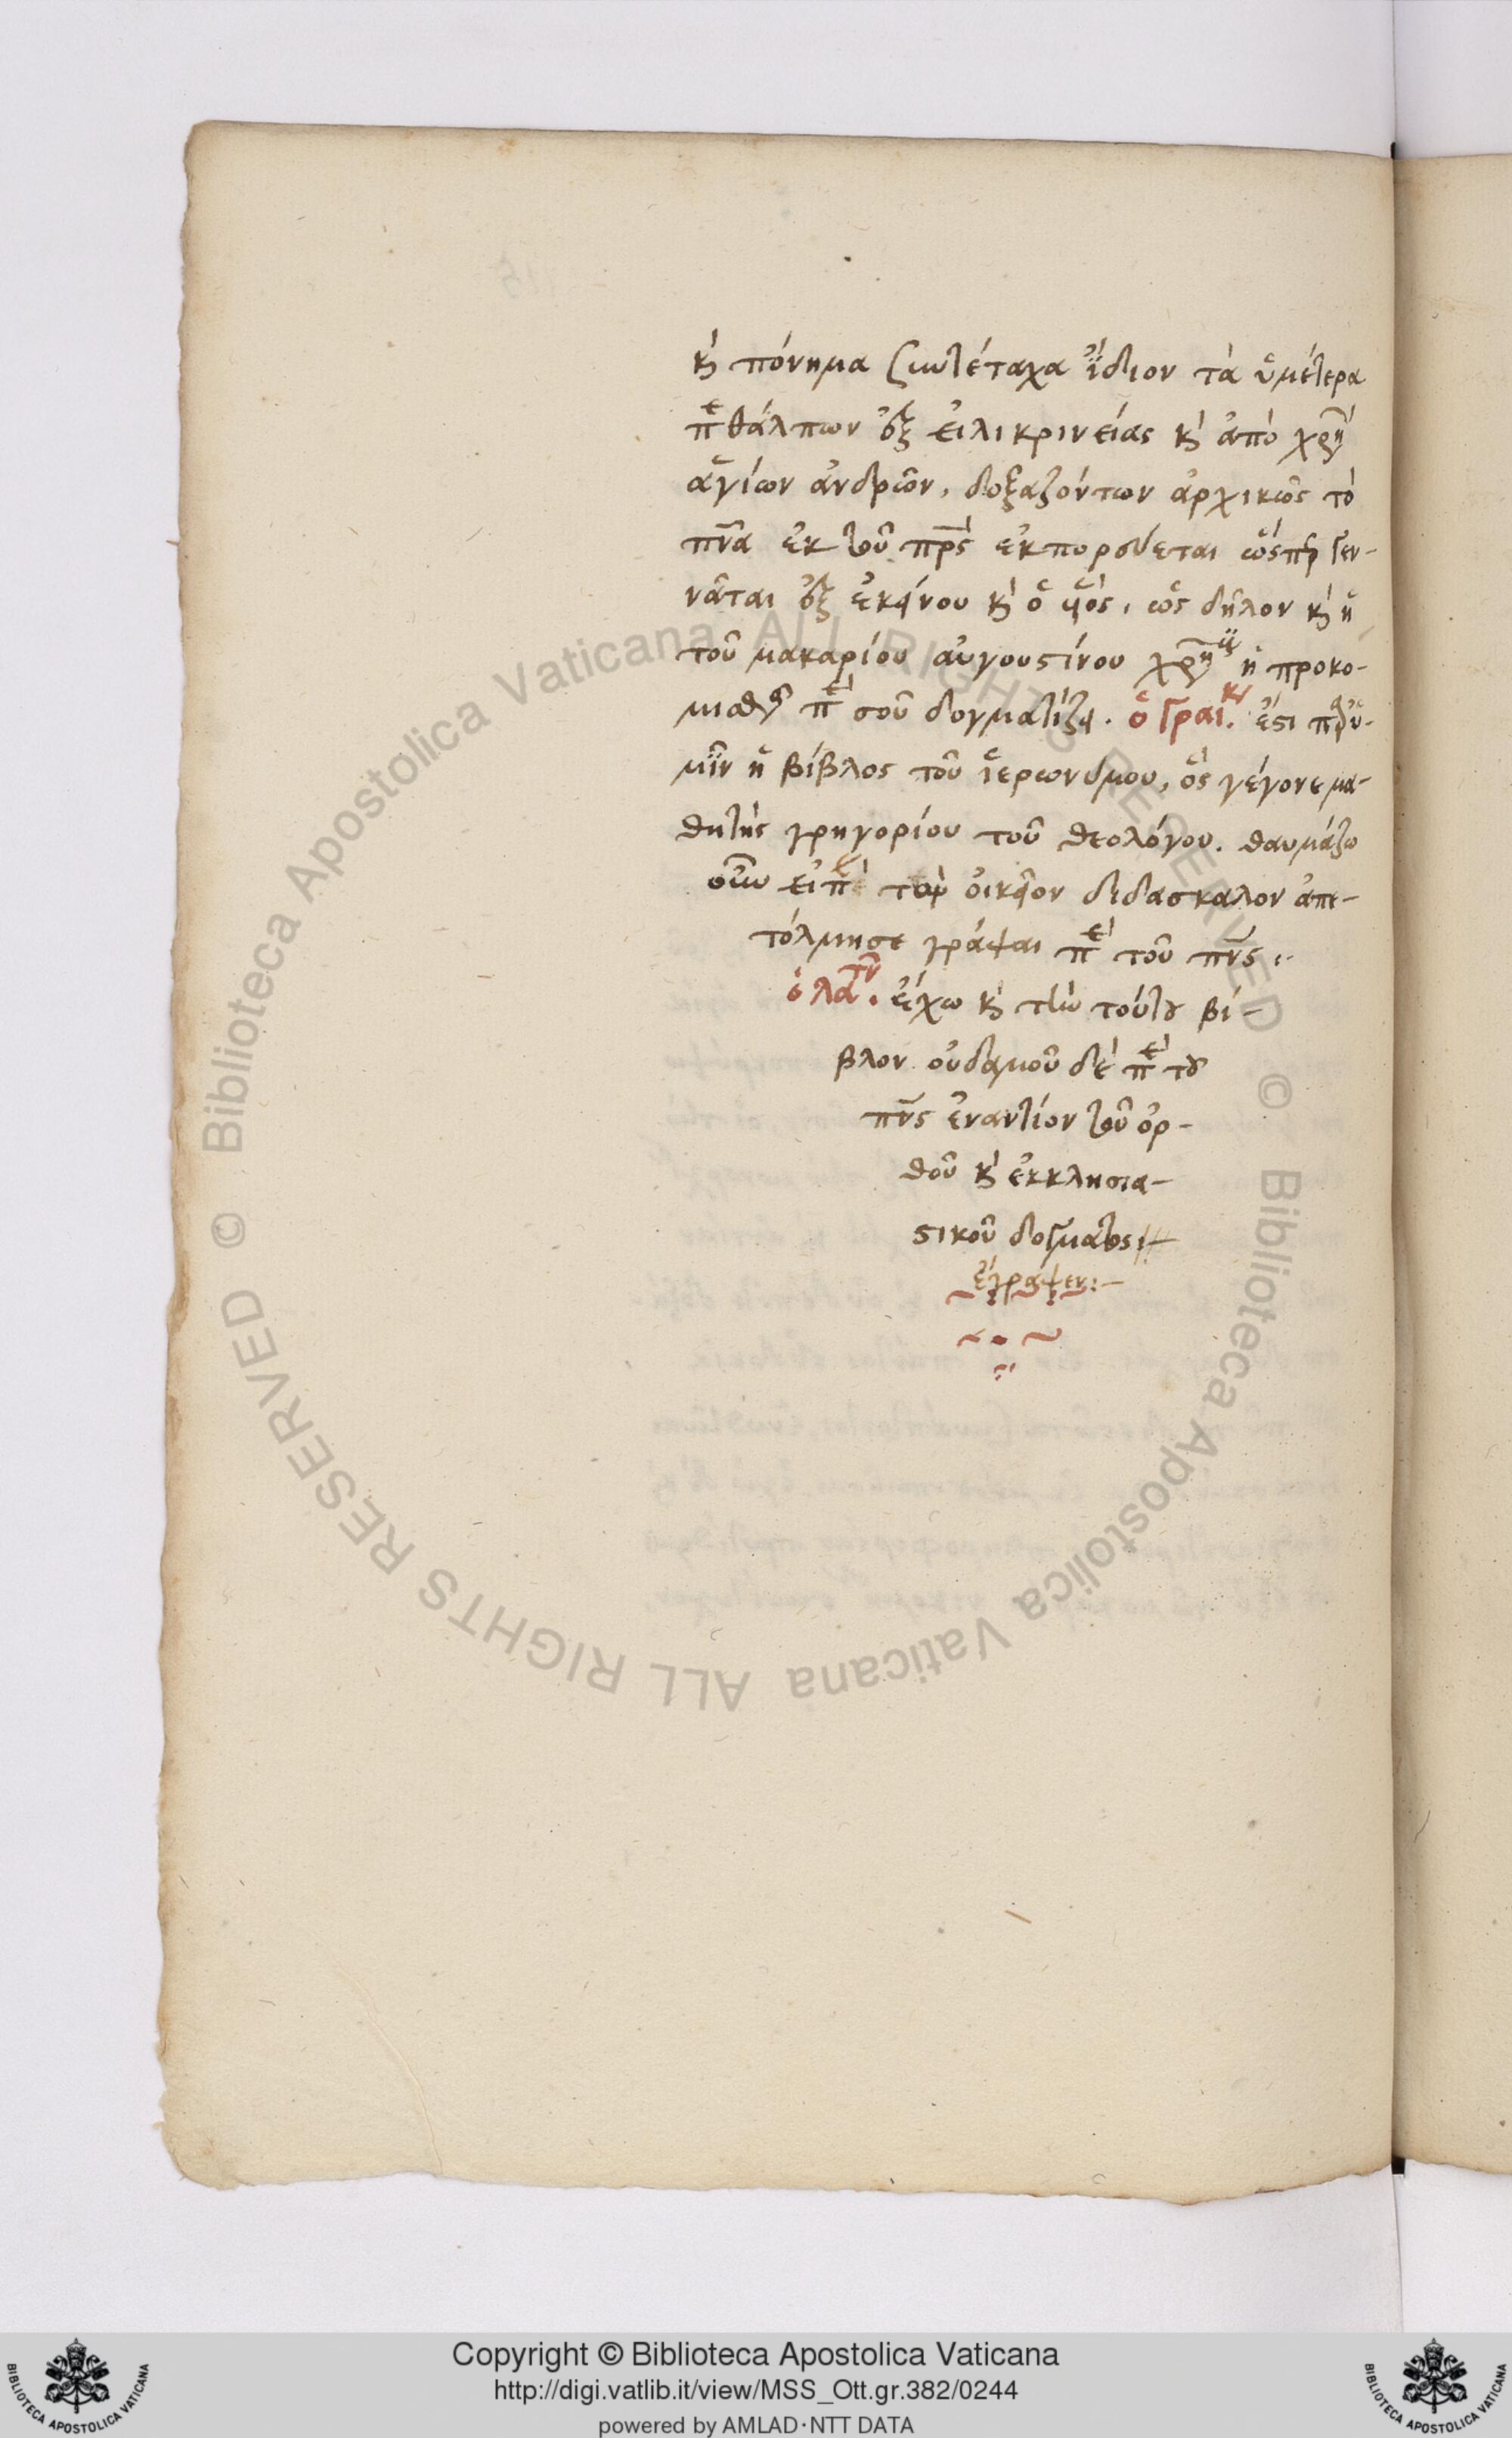 κ̀ πόνημα ζωτέταχα ἴδιον τὰ ὑμέτερα
πε θάλπων ἐξ εἰλικρινείας κ̀ ἀπὸ χρη
ἁγίων ἀνδρῶν, δοξαζόντων ἀρχικῶς τὸ
πνα ἐκ τοῦ πρς ἐκπορεύεται ὥσπερ γεν-
νᾶται ἐξ ἐκείνου κ̀ ὁ υἱός, ὡς δῆλον κ̀ ἡ
τοῦ μακαρίου αὐγουστίνου χρη ἡ προκο-
μισθεῖσα πε σοῦ δογματίζει. ὁ Γραικ. ἔστι παρ' ὑ-
μῖν ἡ βίβλος τοῦ ἱερωνύμου, ὃς γέγονε μα-
θητὴς γρηγορίου τοῦ θεολόγου. θαυμάζω
οὖν εἰ πε τὸν οἰκεῖον διδάσκαλον ἀπε-
τόλμησε γράψαι πε τοῦ πνς.
ὁ λατν. ἔχω κ̀ τὴν τούτου βί-
βλον οὐδαμοῦ δὲ πε του
πνς ἐναντίον τοῦ ὀρ-
θοῦ κ̀ ἐκκλησια-
στικοῦ δόγματος
ἔγραψεν:-
Copyright © Biblioteca Apostolica Vaticana
http://digi.vatlib.it/view/MSS_Ott.gr.382/0244
powered by AMLAD·NTT DATA
Biblioteca Apostolica Vaticana ALL RIGHTS RESERVED © Biblioteca Apostolica Vaticana ALL RIGHTS RESERVED ©
BIBLIOTECA APOSTOLICA VATICANA
BIBLIOTECA APOSTOLICA VATICANA